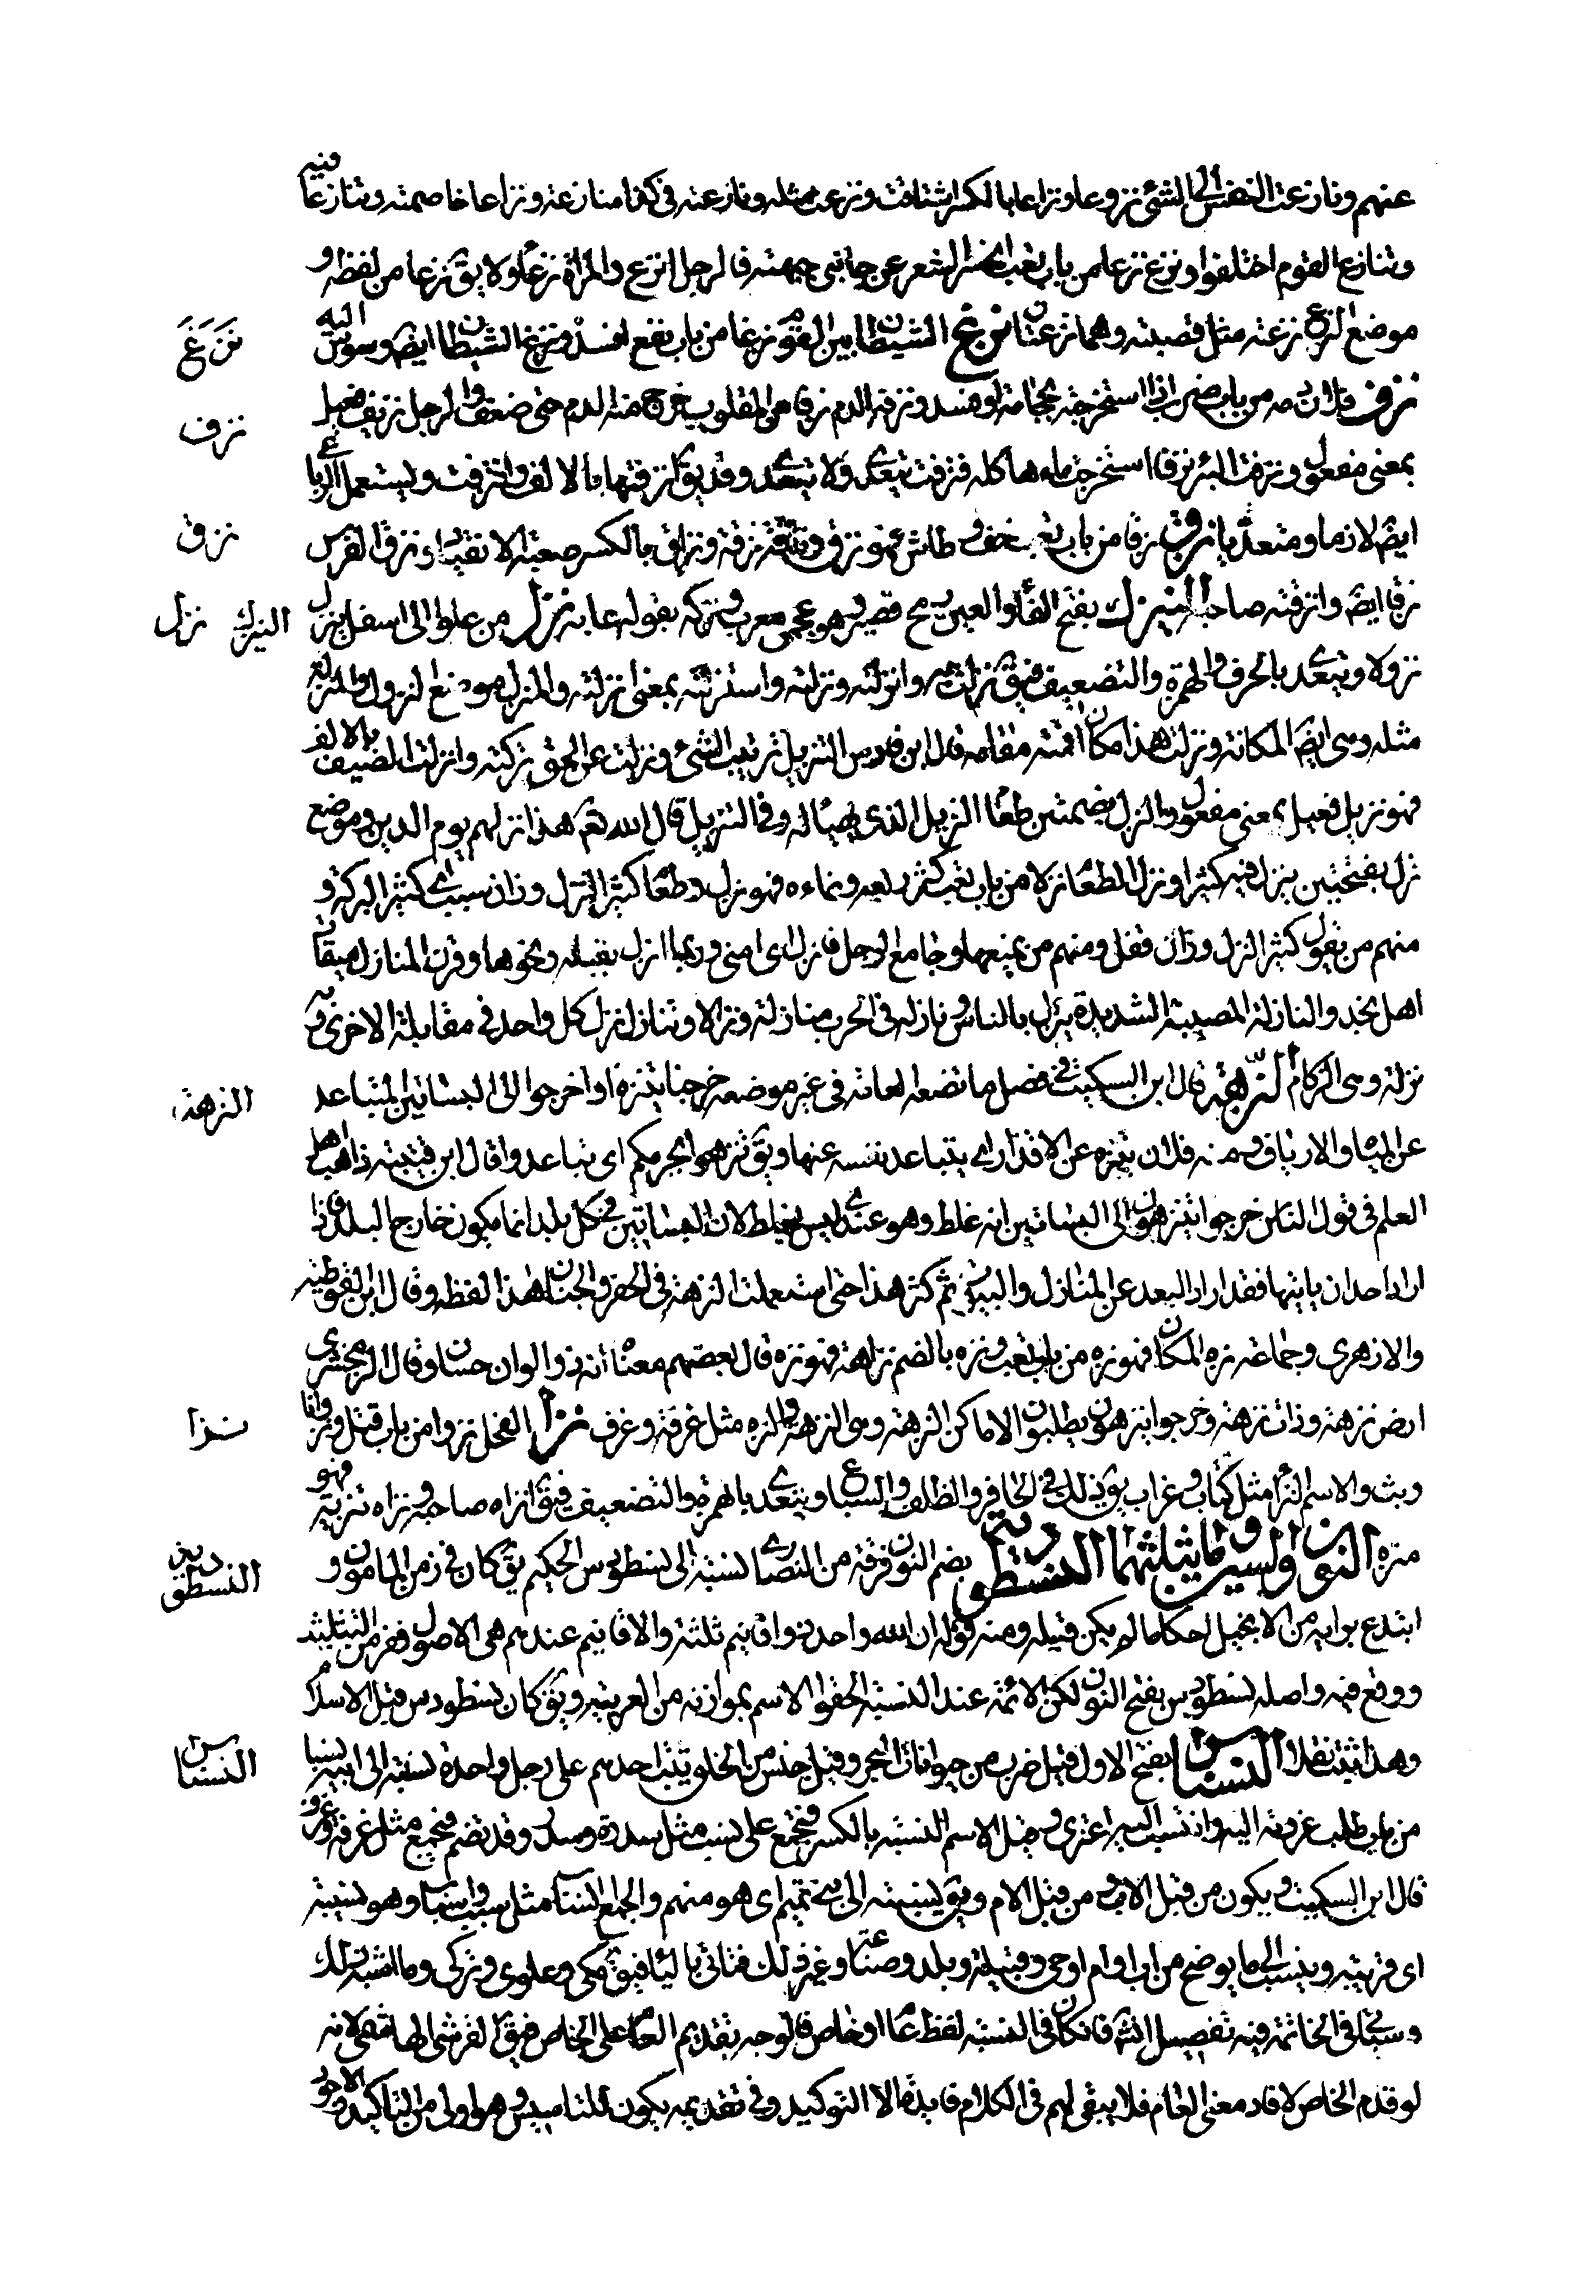 عنهم ونازعت النفس الى الشئ نزوعا ونزاعا بالكسر اشتاقت ونزعت مثله ونازعته فى كذا منازعة ونزاعا خاصمته وتنازعا فيه
وتنازع القوم اختلفوا ونزع نزعا من باب تعب انحسر الشعر عن جانبى جبهته فالرجل انزع والمراة نزعا ولا يق نزعا من لفظه و
موضع النزع نزعة مثل قصبة وهما نزعتان نزغ الشيطان بين القوم نزغا من باب نفع افسد ونزغ الشيطان ايضا وسوس اليه
نَزَغَ
نزف فلان دمه من باب ضرب اذا استخرجه بحجامة او فصد ونزفه الدم نزفا من المقلوب خرج منه الدم حتى ضعف والرجل نزيف فعيل
نزف
بمعنى مفعول ونزفت البئر نزفا استخرجت ماءها كله فنزفت يتعدى ولا يتعدى وقد يق انزفتها بالالف وانزفت ويستعمل الرباعى
ايضا لازما ومتعديا نزق نزقا من باب تعب خف وطاش فهو نزق وناقة نزقة ونزاق بالكسر صعبة الانقياد ونزق الفرس
نزق
نزقا ايضا وانزقه صاحبه النيزك بفتح الفاء والعين رمح قصير وهو عجمى معرب وتركه بقوله عابه نزل من علو الى اسفل ينزل
النيزك نزل
نزولا ويتعدى بالحرف والهمزة والتضعيف فيق نزلت به وانزلته ونزلته واستنزلته بمعنى انزلته والمنزل موضع النزول والمنزلة
مثله وهى ايضا المكانة ونزلت هذا مكان اقمته مقامه قال ابن فارس التنزيل ترتيب الشئ ونزلت عن الحق تركته وانزلت الضيف بالالف
فهو نزيل فعيل بمعنى مفعول والنزل بضمتين طعام النزيل الذى يهيأ له وفى التنزيل قال الله تع هذا نزلهم يوم الدين وموضع
نزل بفتحتين ينزل فيه كثيرا ونزل الطعام نزلا من باب تعب كثر ريعه ونماءه فهو نزل وطعام كثير النزل وزان سبب اى كثير البركة و
منهم من يقول كثير النزل وزان قفل ومنهم من يمنعها وجامع الرجل فانزل اى امنى وربما انزل بقبلة ونحوها وقرن المنازل ميقات
اهل نجد والنازلة المصيبة الشديدة ينزل بالناس ونازله فى الحرب منازلة ونزالا وتنازلا نزل كل واحد فى مقابلة الاخرى وبه
نزلة وهى الزكام النزهة قال ابن السكيت فى فصل ما تضعه العامة فى غير موضعه خرجنا نتنزه اذا خرجوا الى البساتين المتباعد
النزهة
عن المياه والارياف ومنه فلان يتنزه عن الاقذار اى يتباعد بنفسه عنها ويق تنزهوا بحرمكم اى تباعدوا قال ابن قتيبة ذاهب اهل
العلم فى قول الناس خرجوا يتنزهون الى البساتين انه غلط وهو عندى ليس بغلط لان البساتين فى كل بلد انما يكون خارج البلد فاذا
اراد احد ان ياتيها فقد اراد البعد عن المنازل والبيوت ثم كثر هذا حتى استعملت النزهة فى الخضر والجنان هذا لفظه وقال ابن القوطية
والازهرى وجماعة نزه المكان فهو نزه من باب تعب ونزه بالضم نزاهة فهو نزه قال بعضهم معناه انه ذو الوان حسان وقال الزمخشرى
ارض نزهة وذات نزهة وخرجوا يتنزهون يطلبون الاماكن النزهة وهى النزهة والنزه مثل غرفة وغرف نزا الفحل نزوا من باب قتل ونزوانا
نزا
وبث والاسم النزا مثل كتاب وغراب يق ذلك فى الحافر والظلف والسباع ويتعدى بالهمزة والتضعيف فيق انزاه صاحبه ونزاه تنزية فهو
منزه النون والسين وما يثلثهما النسطورية بضم النون فرقة من النصارى نسبة الى نسطورس الحكيم يق كان فى زمن المامون و
النسطورية
ابتدع برايه من الانجيل احكاما لم يكن قبله ومنه قوله ان الله واحد ذو اقانيم ثلثة والاقانيم عندهم هى الاصول ففر من التثليث
ووقع فيه واصله نسطورس بفتح النون لكن الائمة عند النسبة الحقوا الاسم بموازنه من العربية ويق كان نسطورس قبل الاسلام
وهذا يثبت نقلا النسناس بفتح الاول قيل ضرب من حيوانات البحر وقيل جنس من الخلق يثب احدهم على رجل واحدة نسبته الى ابيه نسبا
النسناس
من باب طلب عزوته اليه وانتسب اليه اعتزى وصل الاسم النسبة بالكسر فجمع على نسب مثل سدرة وسدر وقد تضم فجمع مثل غرفة وغرف
قال ابن السكيت ويكون من قبل الاب ومن قبل الام ويق نسبته الى بنى تميم اى هو منهم والجمع انساب مثل سبب واسباب وهو نسيبه
اى قريبه وينسب الى ما يوضح من اب او ام او حى وقبيلة وبلد وصناعة وغير ذلك فتاتى بالياء فيق مكى وعلوى وتركى وما اشبه ذلك
وسيجى فى الخاتمة فيه تفصيل انشاء فان كان فى النسبة لفظ عام او خاص فالوجه تقديم العام على الخاص فيق القرشى الهاشمى لانه
لو قدم الخاص لافاد معنى العام فلا يبقى لهم فى الكلام فايدة الا التوكيد وفى تقديمه يكون للتاسيس وهو اولى من التاكيد والاجود